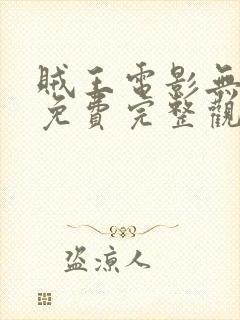 賊王電影無
免費完整觀
盜涼人